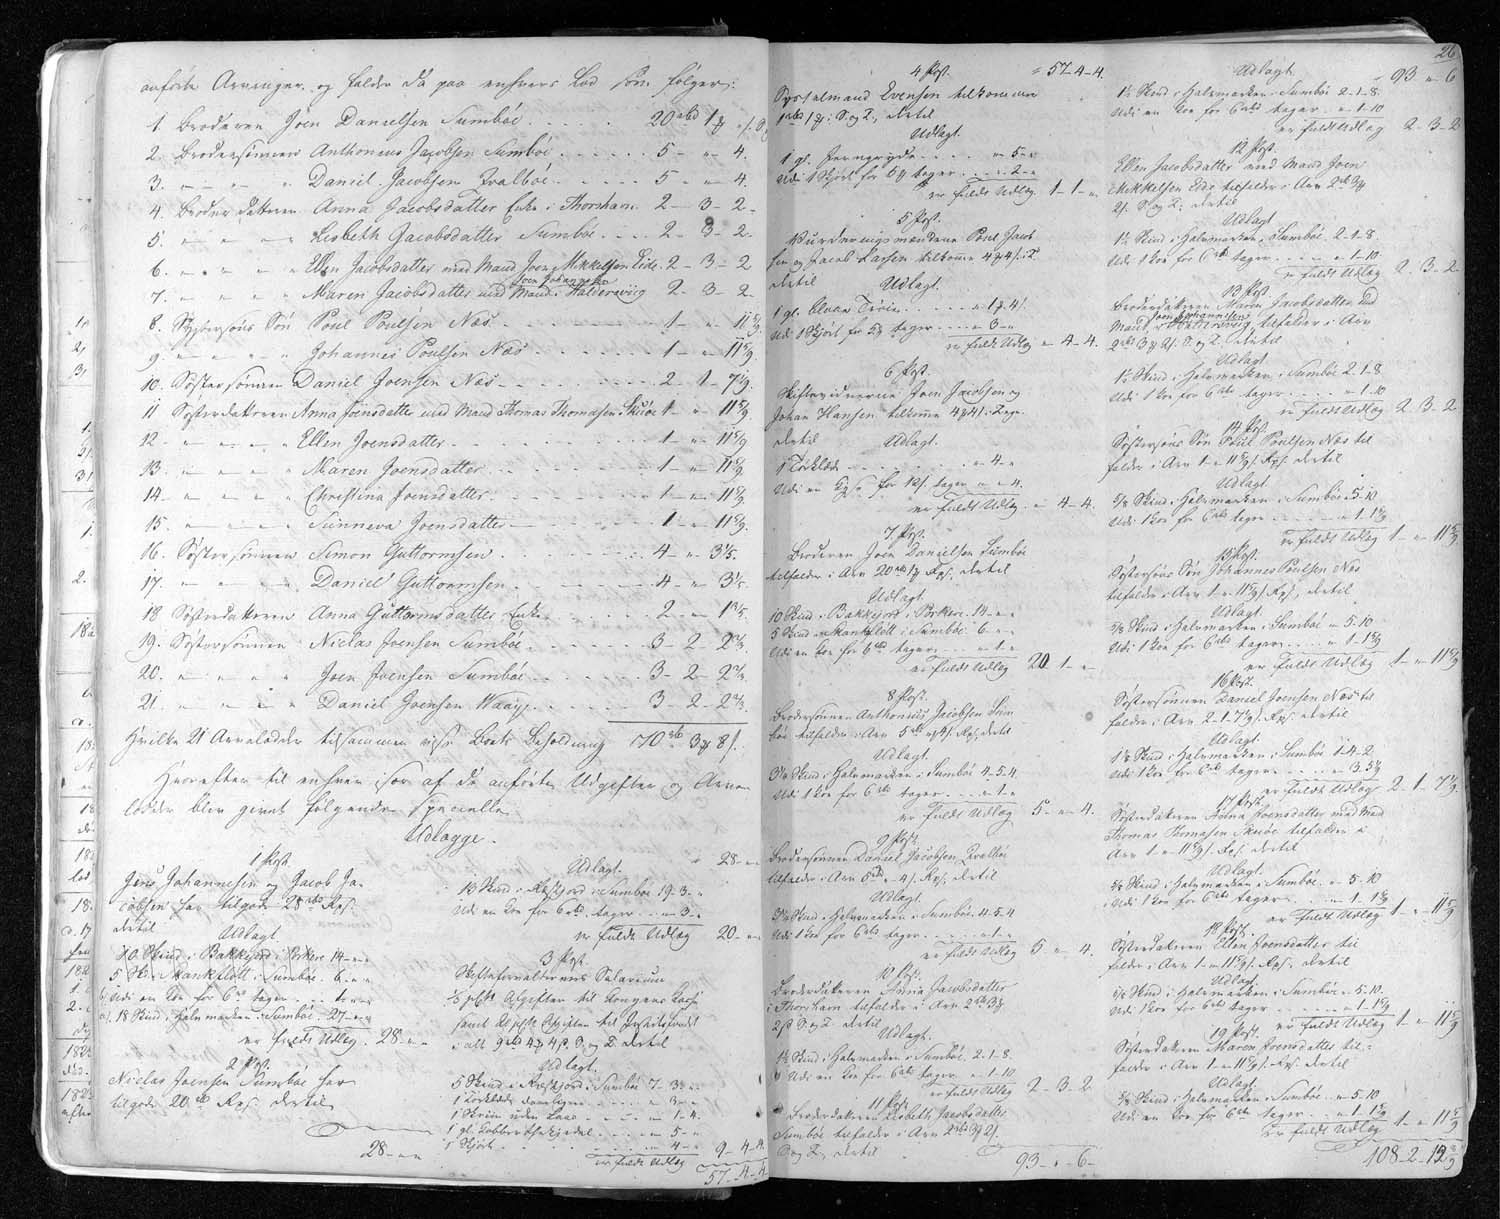 anførte Arvinger, og falder da paa enhvers Lod som følger:
1. Broderen Joen Danielsen Sumbøe 20 rbd 1 # "/. S.
2. Brodersønnen Anthonius Jacobsen Sumbøe 5 - " - 4.
3. " Daniel Jacobsen Qvalbøe 5 - " - 4.
4. Broder datteren Anna Jacobsdatter Enke i Thorshavn 2 - 3 - 2
5. " Lisbeth Jacobsdatter Sumbøe 2 - 3 - 2.
6. " Ellen Jacobsdatter med Mand Joen Mikkelsen Eide 2 - 3 - 2
Joen Johannesen
7. " Maren Jacobsdatter med Mand i Haldersviig 2 - 3 - 2
8. Søstersøns Søn Poul Poulsen Næs 1 - " 11 5/9.
9. " Johannes Poulsen Næs 1 - " 11 5/9.
10. Søstersønnen Daniel Joensen Næs 2 - 1 - 7 1/9.
11 Søsterdatteren Anna Joensdatter med Mand Thomas Thomasen Skuøe 1 - " 11 5/9
12 - " Ellen Joensdatter 1 - " 11 5/9
13. " Maren Joensdatter 1 - " 11 5/9
14. " Christina Joensdatter 1 - " 11 5/9
15. " Sunneva Joensdatter 1 - " 11 5/9.
16. Søstersønnen Simon Guttormsen 4 - " 3 1/5.
17. " Daniel Guttormsen 4 - " 3 1/5.
18 Søsterdatteren Anna Guttormsdatter Enke 2 - " 1 3/5.
19. Søstersønnen Niclas Joensen Sumbøe 3 - 2 - 2 2/3.
20. " Joen Joensen Sumbøe 3 - 2 - 2 2/3.
21. " Daniel Joensen Waag 3 - 2 - 2 2/3.
Hvilke 21 Arvelodder tilsammen vise Boets Beholdning 70 rb 3 # 8/.
Hvorefter til enhver især af de anførte Udgifter og Arve-
lodder blev gjort følgende specielle
Udlægge.
1 Post.
Jens Johannesen og Jacob Ja-
cobsen har tilgode 28 rbd Rpf.
dertil
Udlagt.
10 Skind i Bakkejord i Porkere 14 - " - "
5 Sk: i Skankeflott i Sumbøe 6 - " - "
Udi en Koe for 6 rb tager 1 - " - "
18 Skind i Halvmarken i Sumbøe 27 - " - "
er fuldt Udlæg 28 - " - "
2 Post.
Niclas Joensen Sumbøe har
tilgode 20 rb Rpf. dertil
28 - " "
28 - " "
Udlagt.
13 Skind i Sumbøe 19 - 3 - "
Udi en Koe for 6 rbd. tager " - 3 - "
er fuldt Udlæg 20 - " "
3 Post
Skifteforvalterens Salarium
Afgiften til Kongens Kasse
samt Afgiften til Justitsfondet
i alt 9 rbd 4 # 4 ß S. og T. dertil
Udlagt.
5 Skind i Sumbøe 7 - 3 - "
1 Tørklæde " - 3 - "
1 Skrin uden Laas " - 1 - 4.
1 gl. Kobberthekjedel " - 5 - "
1 Skjort " - 4 - "
er fuldt Udlæg 9 - 4 - 4
57 - 4 - 4
4 Post. " 57 - 4 - 4.
Sysselmand Evensen tilkommer
1 rbd 1 # S. og T., dertil
Udlagt
1 gl. Jerngryde " - 5 - "
Udi 1 Skjort for 5 # tager " - 2 - "
er fuldt Udlæg 1 - 1 - "
5 Post.
Vurderingsmændene Poul Jacob
sen og Jacob Larsen tilkomme 4 # 4/. S. T
dertil
Udlagt.
1 gl. blaae Trøie " 1 # 4/.
Udi 1 Skjort for 5 # tager " - 3 - "
er fuldt Udlæg " - 4 - 4.
6 Post.
Skiftevidnerne Joen Jacobsen og
Johan Hansen tilkomme 4 # 4/.
dertil
Udlagt.
1 Tørklæde " - 4 - "
er fuldt Udlæg " - 4 - 4.
7 Post.
Broderen Joen Danielsen Sumbøe
tilfalder i Arv 20 rb 1 # Rpf. dertil
Udlagt
10 Skind i Bakkejord i Porkere 14 - " - "
5 Skind i Skankeflott i Sumbøe 6 - " - "
Udi en Koe for 6 rb tager " - 1 - "
er fuldt Udlæg 20 1 - "
8 Post.
Brodersønnen Anthonius Jacobsen Sum
bøe tilfalder i Arv 5 rb 4/. Rpf. dertil
Udlagt.
Skind i Halvmarken i Sumbøe 4 - 5 . 4
Udi 1 Koe for 6 rbd tager " - 1 - "
er fuldt Udlæg 5 - " - 4.
9 Post.
Brodersønnen Daniel Jacobsen Qvalbøe
tilfalder i Arv 5 rbd " 4/. Rpf. dertil
Udlagt
Skind i Halvmarken i Sumbøe 4 - 5 . 4
Udi 1 Koe for 6 rbd tager " - 1 - "
er fuldt Udlæg 5 - " - 4.
10 Post.
Broderdatteren Anna Jacobsdatter
i Thorshavn tilfalder i Arv 2 rb 3 #
2 ß S og T dertil
Udlagt.
Skind i Halvmarken i Sumbøe 2 - 1 - 8.
Udi en Koe for 6 rbd tager " - 1 - 10
er fuldt Udlæg 2 - 3 - 2.
11 Post.
Broderdatteren Lisbeth Jacobsdatter
Sumbøe tilfalder i Arv 2 rbd 3 # 2/.
S og T, dertil
93 - " - 6 -
26
Udlagt. " 93 " 6
1½ Skind i Halvmarken i Sumbøe 2 - 1 - 8.
Udi en Koe for 6 rbd tager " - 1 - 10
er fuldt Udlæg 2 - 3 - 2
12 Post.
Ellen Jacobsdatter med Mand Joen
Mikkelsen Eide tilfalder i Arv 2 rb 3 #
2/. S. og T. dertil
Udlagt
1½ Skind i Halvmarken i Sumbøe 2 - 1 - 8.
Udi 1 Koe for 6 rb tager " - 1 - 10
er fuldt Udlæg 2 - 3 - 2.
13 Post.
Broderdatteren Maren Jacobsdatter med
Joen Johannesen
Mand i Haldersviig tilfalder i Arv
2 rb 3 # 2/. S. og T. dertil
Udlagt
1½ Skind i Halvmarken i Sumbøe 2 - 1 - 8.
Udi 1 Koe for 6 rbd tager " - 1 - 10
er fuldt Udlæg 2 - 3 - 2
14 Post.
Søstersøns Søn Poul Poulsen Næs til
falder i Arv 1 - " 11 5/9 /. Rpf. dertil
Udlagt.
Skind i Halvmarken i Sumbøe " 5 - 10
Udi 1 Koe for 6 rbd tager " - 1 . 1 5/9
er fuldt Udlæg 1 - " 11 5/9
15 Post.
Søstersøns Søn Johannes Poulsen Næs
tilfalder i Arv 1 - " 11 5/9 /. Rpf. dertil
Udlagt
Skind i Halvmarken i Sumbøe " 5 . 10
Udi 1 Koe for 6 rbd tager " - 1 . 1 5/9
er fuldt Udlæg 1 - " 11 5/9
16 Post.
Søstersønnen Daniel Joensen Næs til
falder i Arv 2 - 1 - 7 1/9 /. Rpf. dertil
Udlagt.
Skind i Halvmarken i Sumbøe 1 - 4 - 2.
Udi 1 Koe for 6 rb tager " - 3 . 5 1/9
er fuldt Udlæg 2 - 1 - 7 1/9.
17 Post.
Søsterdatteren Anna Joensdatter med Mand
Thomas Thomasen Skuøe tilfalder i
Arv 1 - " 11 5/9 /. Rpf. dertil
Udlagt
Skind i Halvmarken i Sumbøe " 5 - 10
Udi 1 Koe for 6 rbd tager " - 1 . 1 5/9
er fuldt Udlæg 1 - " 11 5/9
18 Post.
Søsterdatteren Ellen Joensdatter til
falder i Arv 1 - " 11 5/9 /. Rpf. dertil
Udlagt
Skind i Halvmarken i Sumbøe " 5 - 10.
Udi 1 Koe for 6 rbd tager " - 1 . 1 5/9
er fuldt Udlæg 1 - " 11 5/9
19 Post.
Søsterdatteren Maren Joensdatter til-
falder i Arv 1 - " 11 5/9 /. Rpf. dertil
Udlagt
Skind i Halvmarken i Sumbøe " 5 - 10
Udi en Koe for 6 rbd tager " - 1 . 1 5/9
er fuldt Udlæg 1 - " 11 5/9
108 - 2 - 12